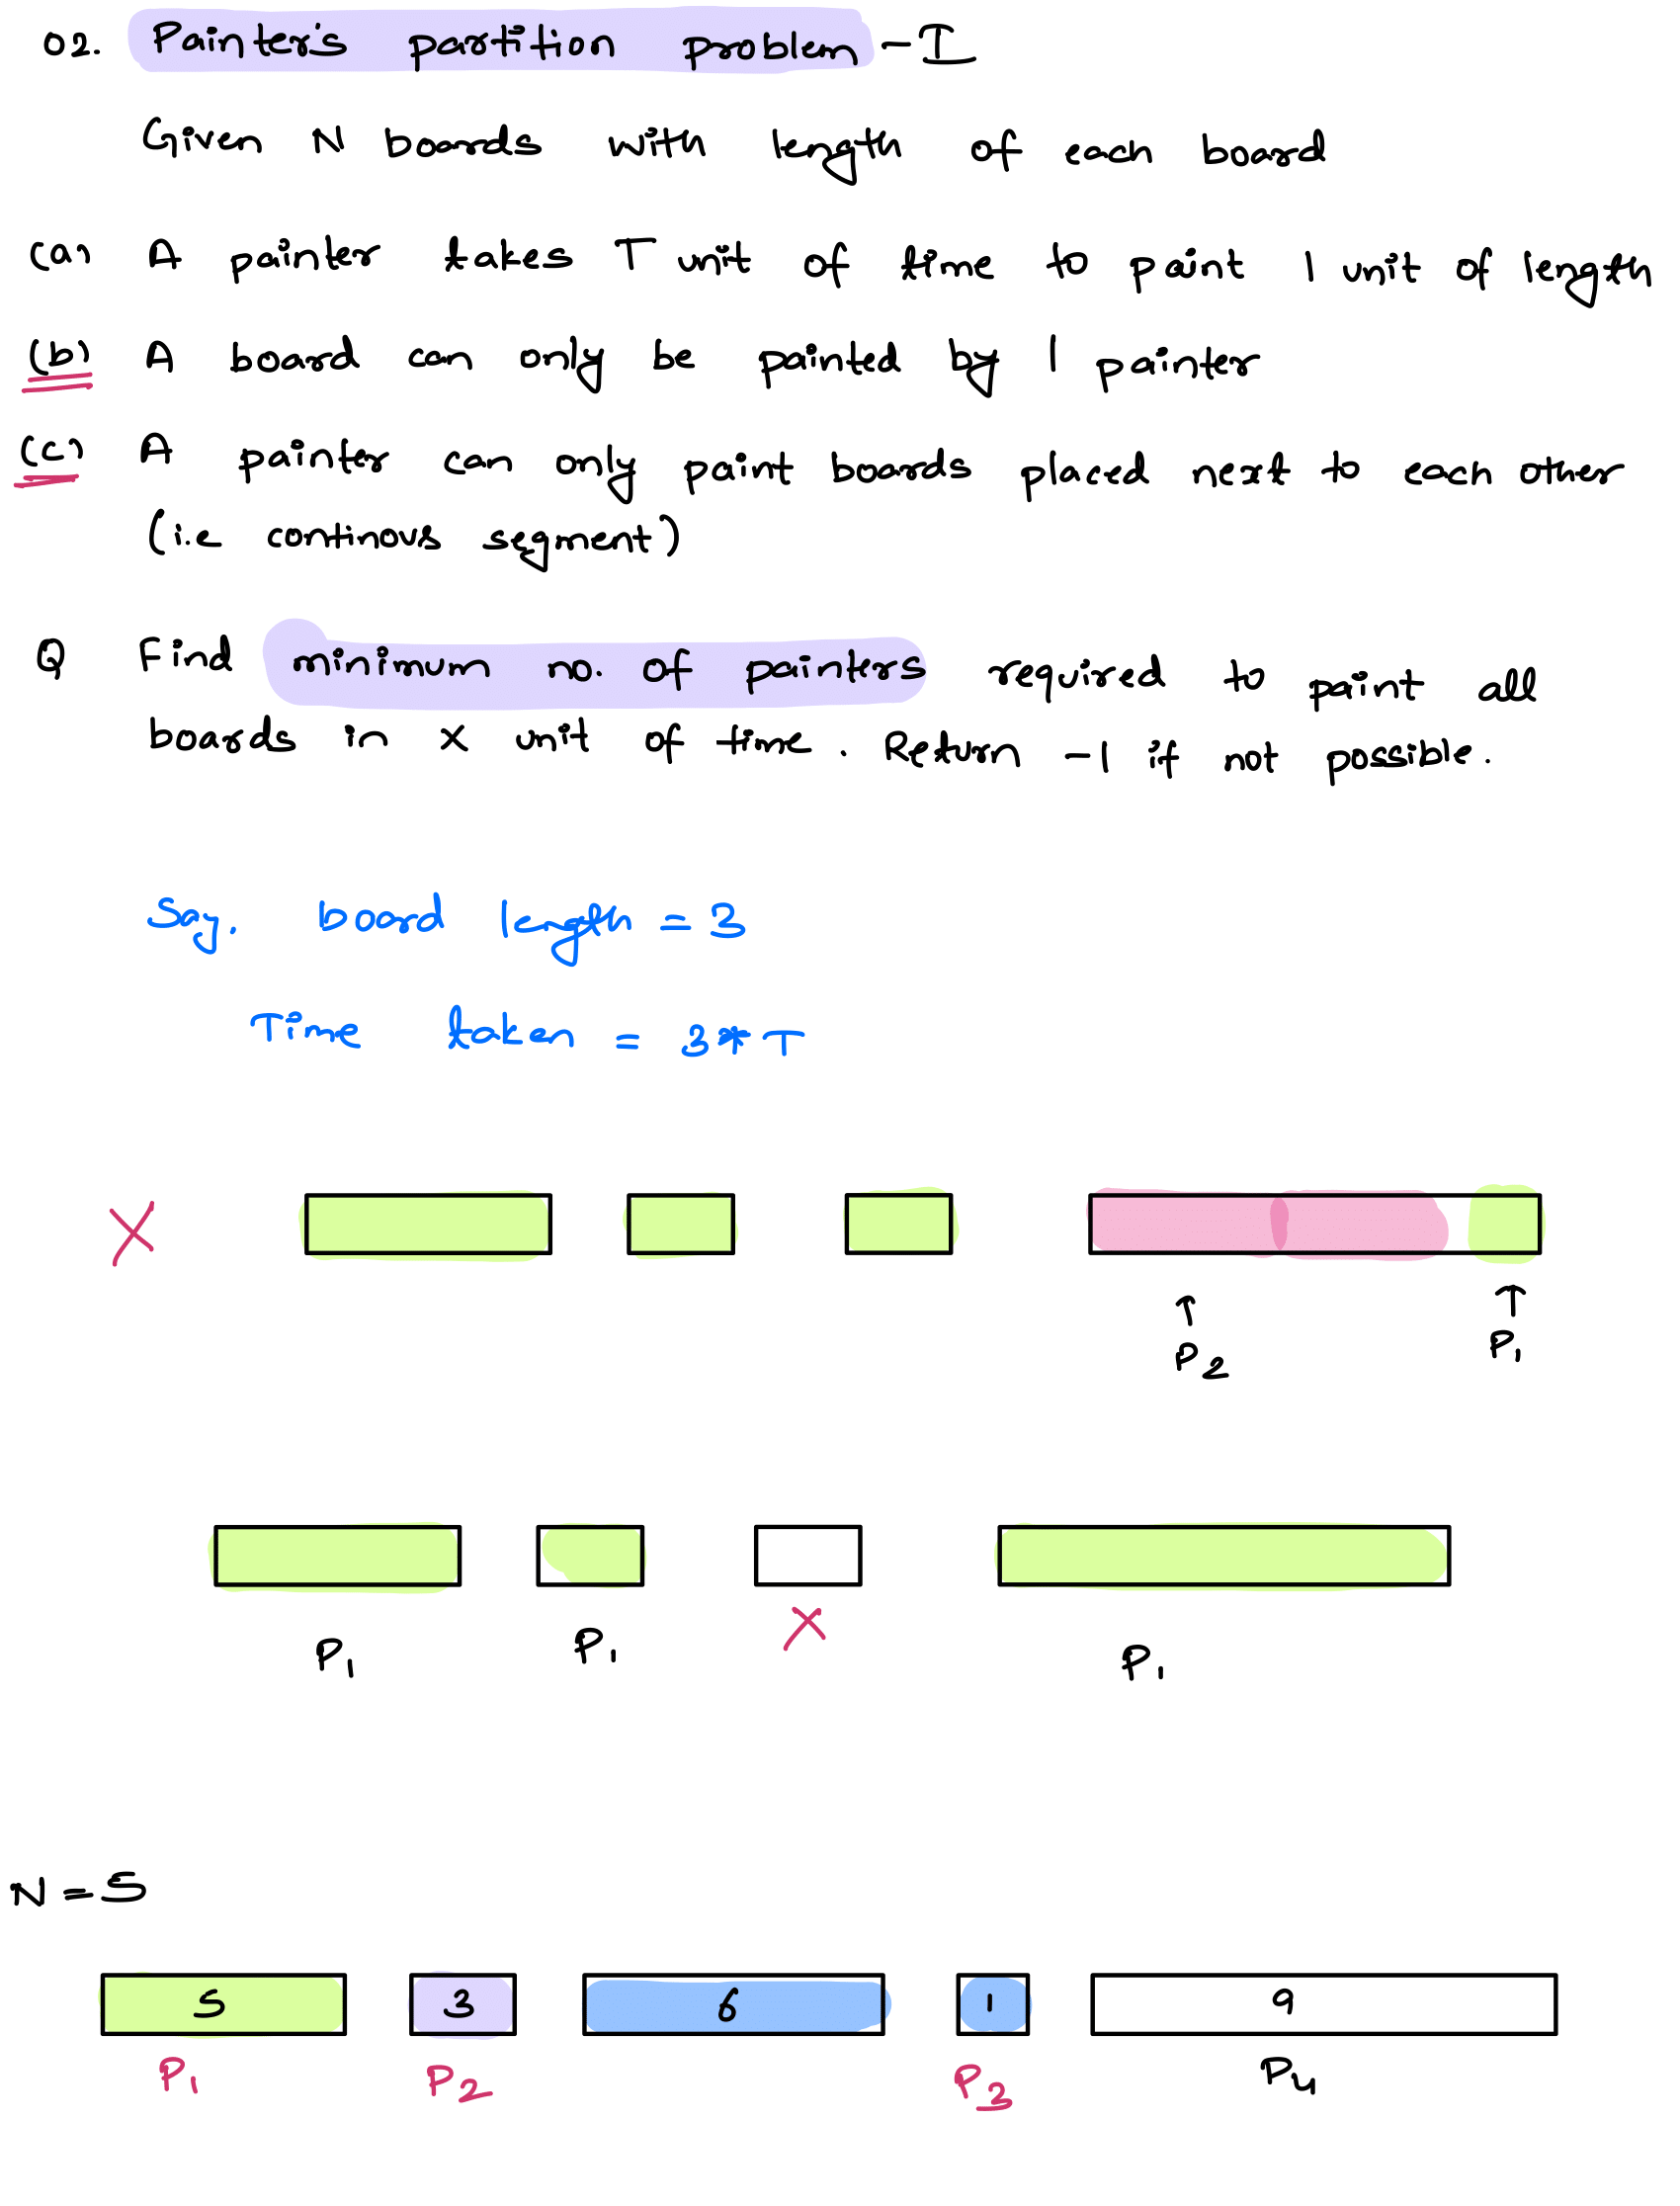 02. Painter's partition problem - I
Given N boards with length of each board
(a) A painter takes T unit of time to paint 1 unit of length
(b) A board can only be painted by 1 painter
(c) A painter can only paint boards placed next to each other
(i.e continous segment)
Q Find minimum no. of painters required to paint all
boards in X unit of time. Return -1 if not possible.
Say. board length = 3
Time taken = 3*T
X
↑ ↑
P2 P1
X
P1 P1 P1
N = 5
5 3 6 1 9
P1 P2 P3 P4